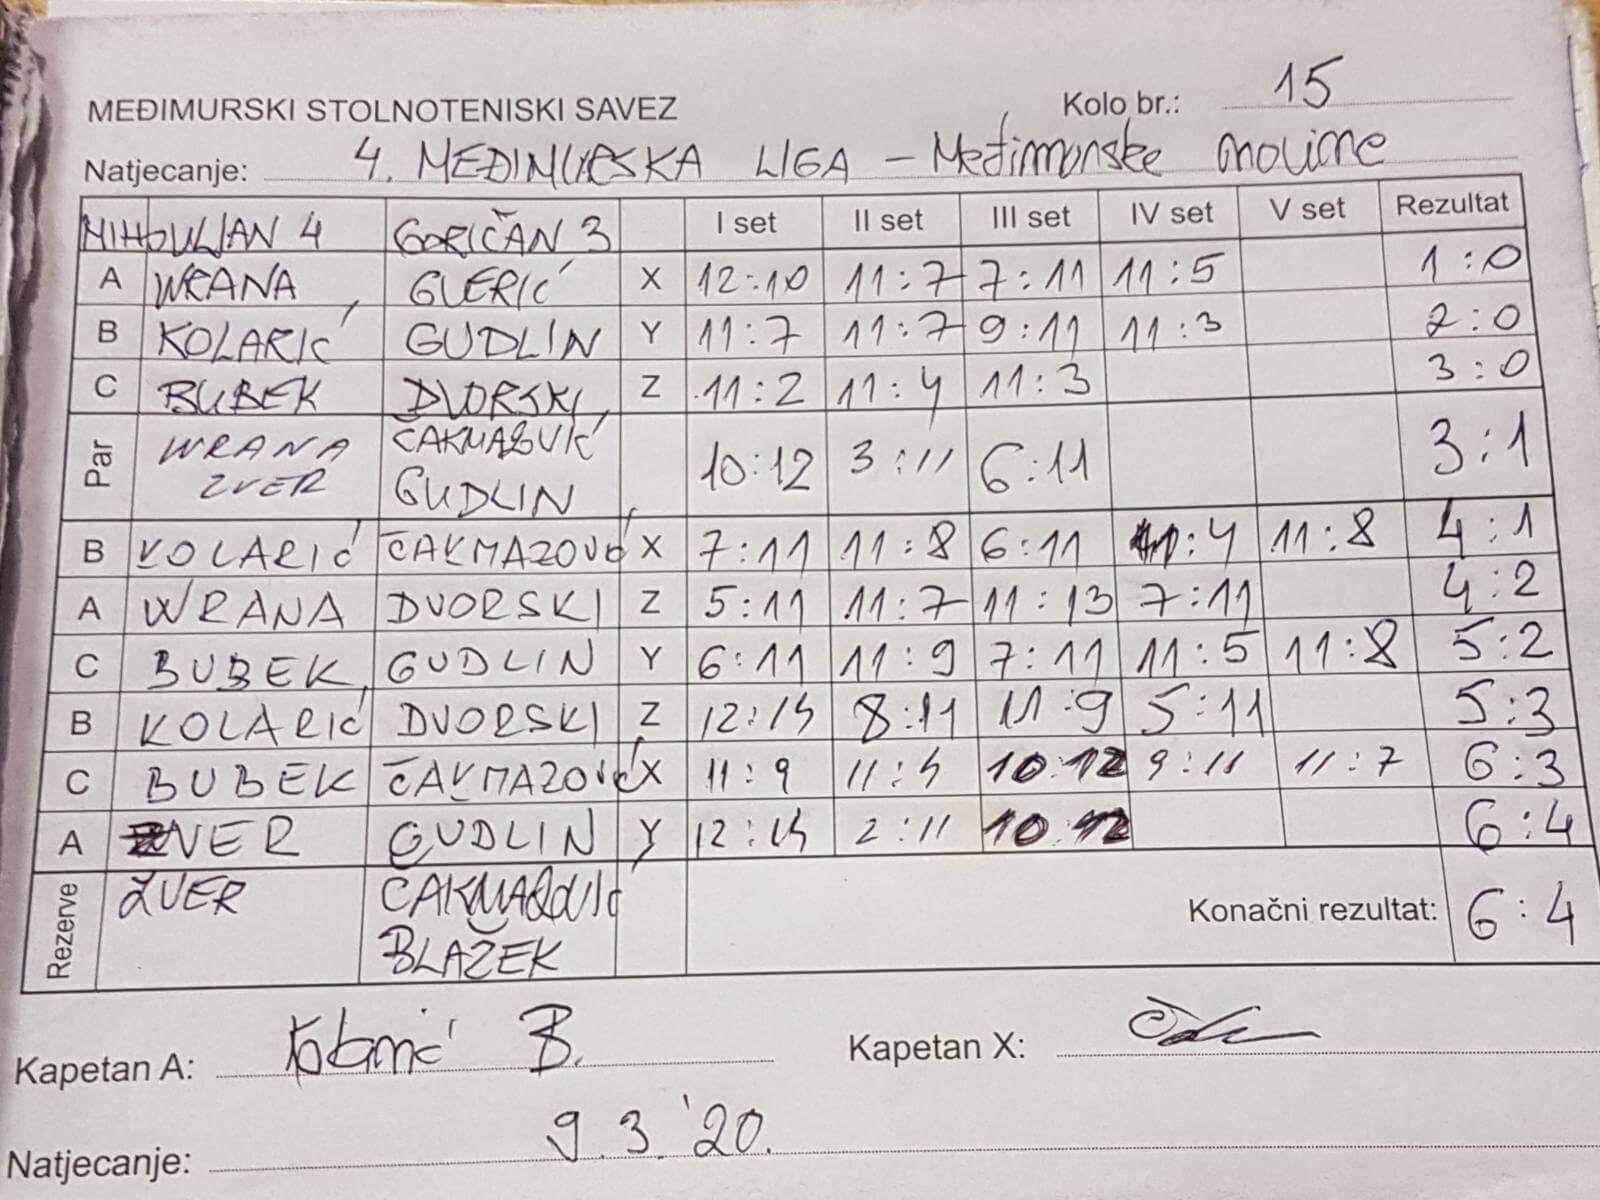 MEĐIMURSKI STOLNOTENISKI SAVEZ Kolo br.: 15
Natjecanje: 4. MEĐIMURSKA LIGA – Međimurske novine
MIHOVLJAN 4 GORIČAN 3 I set II set III set IV set V set Rezultat
A WRANA GLERIĆ X 12:10 11:7 7:11 11:5 1:0
B KOLARIĆ GUDLIN Y 11:7 11:7 9:11 11:3 2:0
C BUBEK DVORSKI Z 11:2 11:4 11:3 3:0
Par WRANA ČAKMAZOVIĆ 10:12 3:11 6:11 3:1
ZVER GUDLIN
B KOLARIĆ ČAKMAZOVIĆ X 7:11 11:8 6:11 11:4 11:8 4:1
A WRANA DVORSKI Z 5:11 11:7 11:13 7:11 4:2
C BUBEK GUDLIN Y 6:11 11:9 7:11 11:5 11:8 5:2
B KOLARIĆ DVORSKI Z 12:14 8:11 11:9 5:11 5:3
C BUBEK ČAKMAZOVIĆ X 11:9 11:4 10:12 9:11 11:7 6:3
A ZVER GUDLIN Y 12:14 2:11 10:12 6:4
Rezerve ZVER ČAKMAZOVIĆ Konačni rezultat: 6:4
BLAŽEK
Kapetan A: Kolarić B. Kapetan X:
Natjecanje: 9.3.'20.